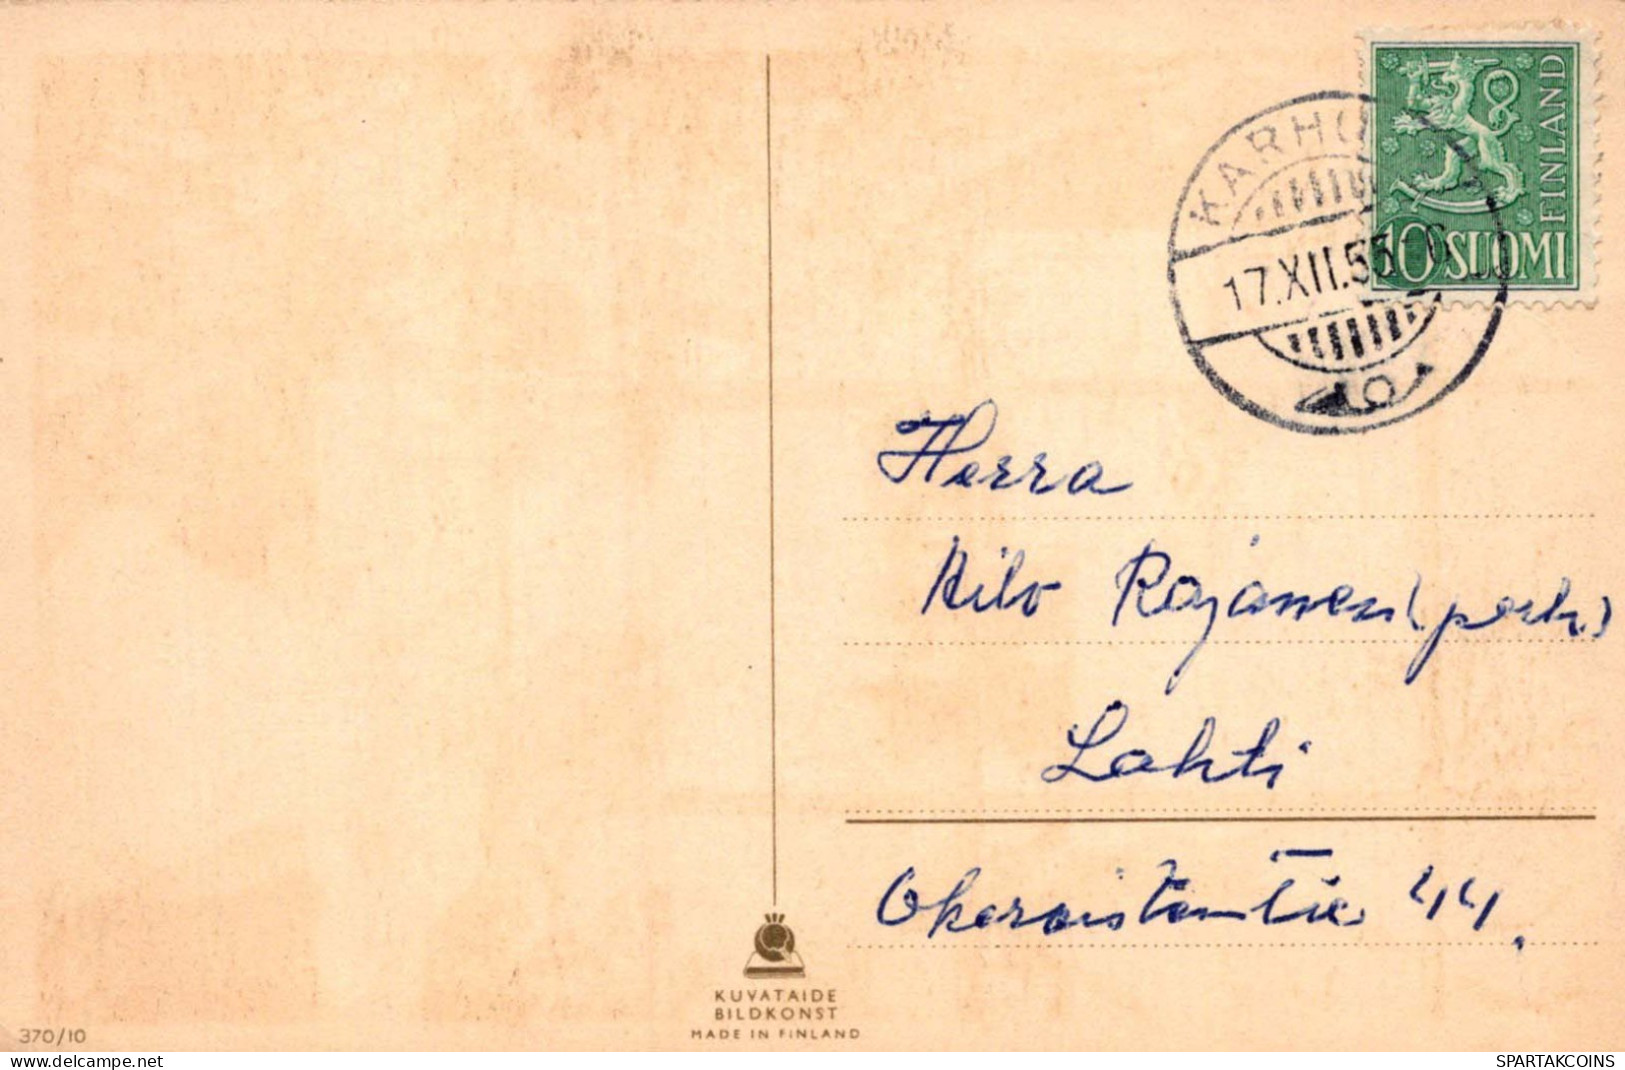 FINLAND
10 SUOMI
KARHU
17.XII.55-6
Herra
Rajanen (perh.)
Lahti
44.
KUVATAIDE
BILDKONST
MADE IN FINLAND
370/10
delcampe.net
SPARTAKCOINS